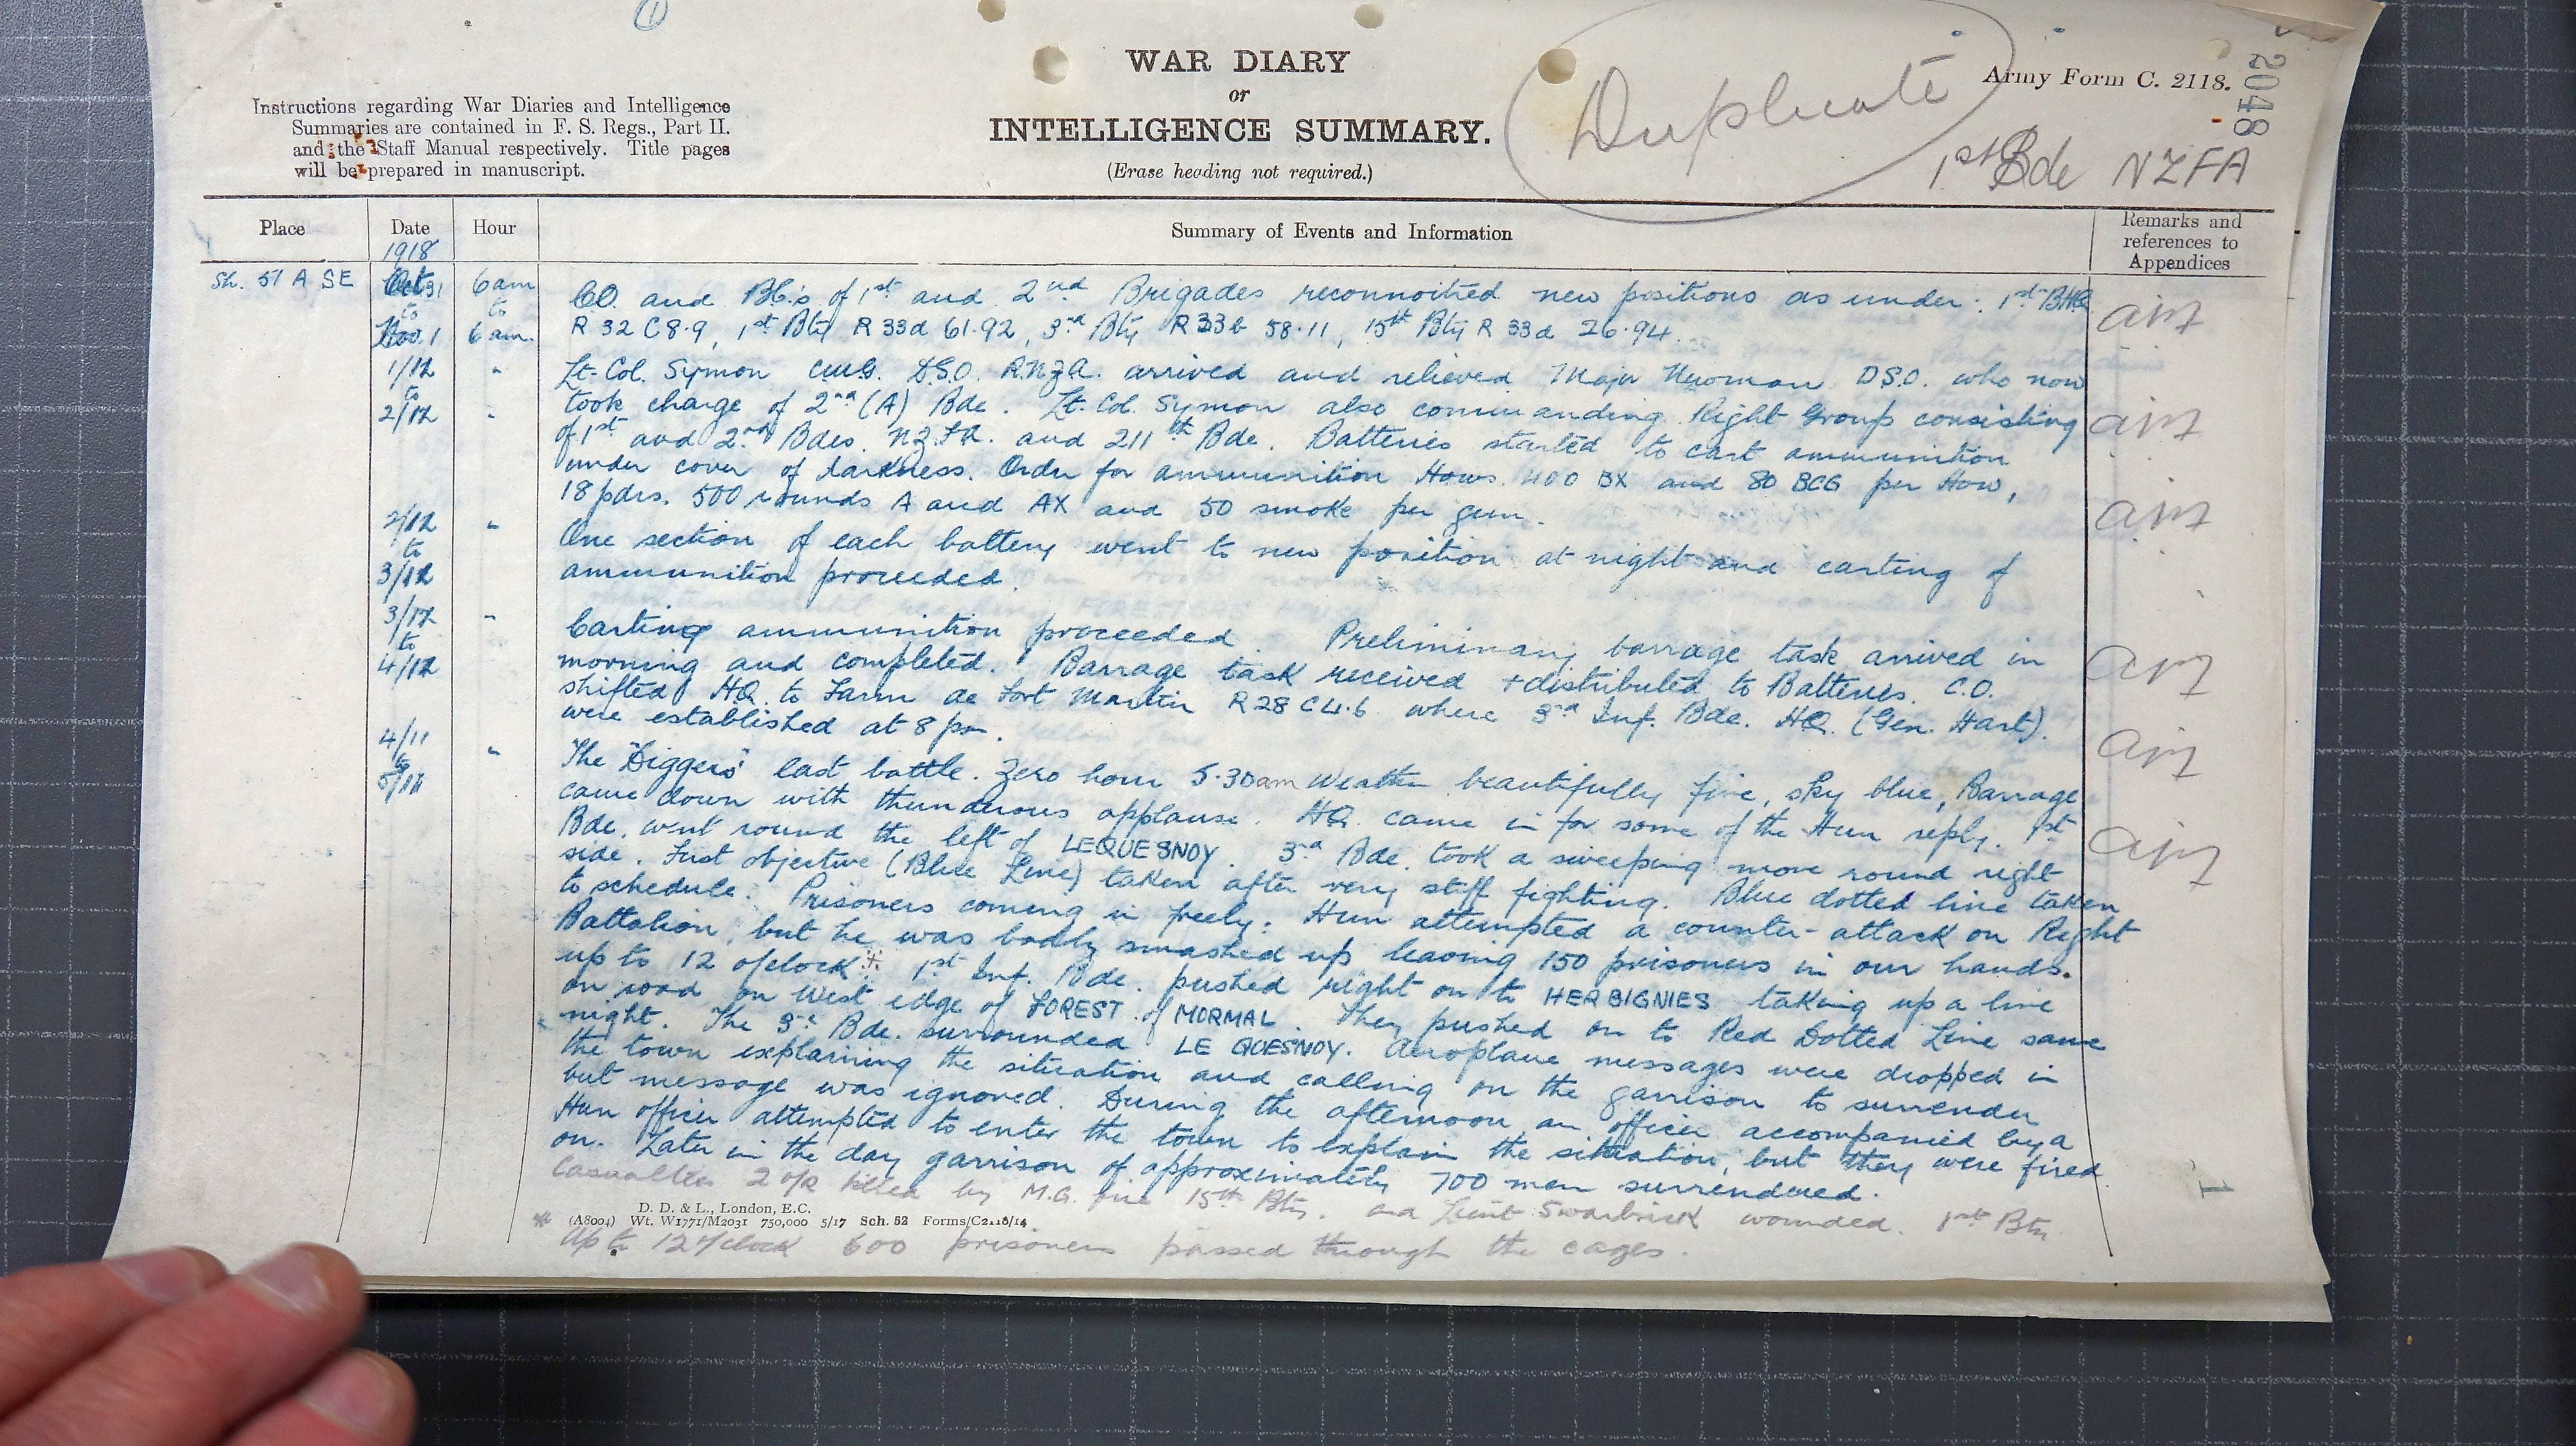 1
WAR DIARY
or
INTELLIGENCE SUMMARY.
(Erase heading not required.)
Instructions regarding War Diaries and Intelligence
Summaries are contained in F. S. Regs., Part II.
and the Staff Manual respectively. Title pages
will be prepared in manuscript.
Duplicate
Army Form C. 2118.
2048
1st Bde NZFA
Place
Date
Hour
Summary of Events and Information
Remarks and
references to
Appendices
1918
Sh. 51 A SE
Oct 31
to
Nov. 1
6am
to
6am.
CO. and BC.'s of 1st and 2nd Brigades reconnoitred new positions as under: 1st BHQ
R 32 C 8.9, 1st Bty R 33d 61.92, 3rd Bty R 33b 58.11, 15th Bty R 33d 26.94.
1/12
to
2/12
"
Lt-Col. Symon CMG. DSO. RNZA. arrived and relieved Major Newman DSO. who now
took charge of 2nd (A) Bde. Lt. Col. Symon also commanding Right Group consisting
of 1st and 2nd Bdes. NZFA. and 211th Bde. Batteries started to cart ammunition
under cover of darkness. Order for ammunition Hows. 400 BX and 80 BCG per How,
18 pdrs. 500 rounds A and AX and 50 smoke per gun.
2/12
to
3/12
"
One section of each battery went to new position at night and carting of
ammunition proceeded.
3/12
to
4/12
"
Carting ammunition proceeded. Preliminary barrage task arrived in
morning and completed. Barrage task received + distributed to Batteries. C.O.
shifted HQ. to Farm de Fort Martin R 28 C 4.6 where 3rd Inf. Bde. HQ. (Gen. Hart).
were established at 8 pm.
4/11
to
5/11
"
The "Diggers" last battle. Zero hour 5.30am Weather beautifully fine, sky blue, Barrage
came down with thunderous applause. HQ. came in for some of the Hun reply. 1st
Bde. went round the left of LEQUESNOY. 3rd Bde. took a sweeping move round right
side. First objective (Blue Line) taken after very stiff fighting. Blue dotted line taken
to schedule. Prisoners coming in freely. Hun attempted a counter-attack on Right
Battalion, but he was badly smashed up leaving 150 prisoners in our hands.
up to 12 o'clock * 1st Inf. Bde. pushed right on to HERBIGNIES taking up a line
on road on West edge of FOREST of MORMAL. They pushed on to Red Dotted Line same
night. The 3rd Bde. surrounded LE QUESNOY. Aeroplane messages were dropped in
the town explaining the situation and calling on the garrison to surrender
but message was ignored. During the afternoon an officer accompanied by a
Hun officer attempted to enter the town to explain the situation, but they were fired
on. Later in the day garrison of approximately 700 men surrendered.
Casualties 2 o/r killed by M.G. fire 15th Bty. and Lieut Swarbrick wounded. 1st Bty
D. D. & L., London, E.C.
(A8004) Wt. W1771/M2031 750,000 5/17 Sch. 52 Forms/C2118/14
* Up to 12 o'clock 600 prisoners passed through the cages.
1